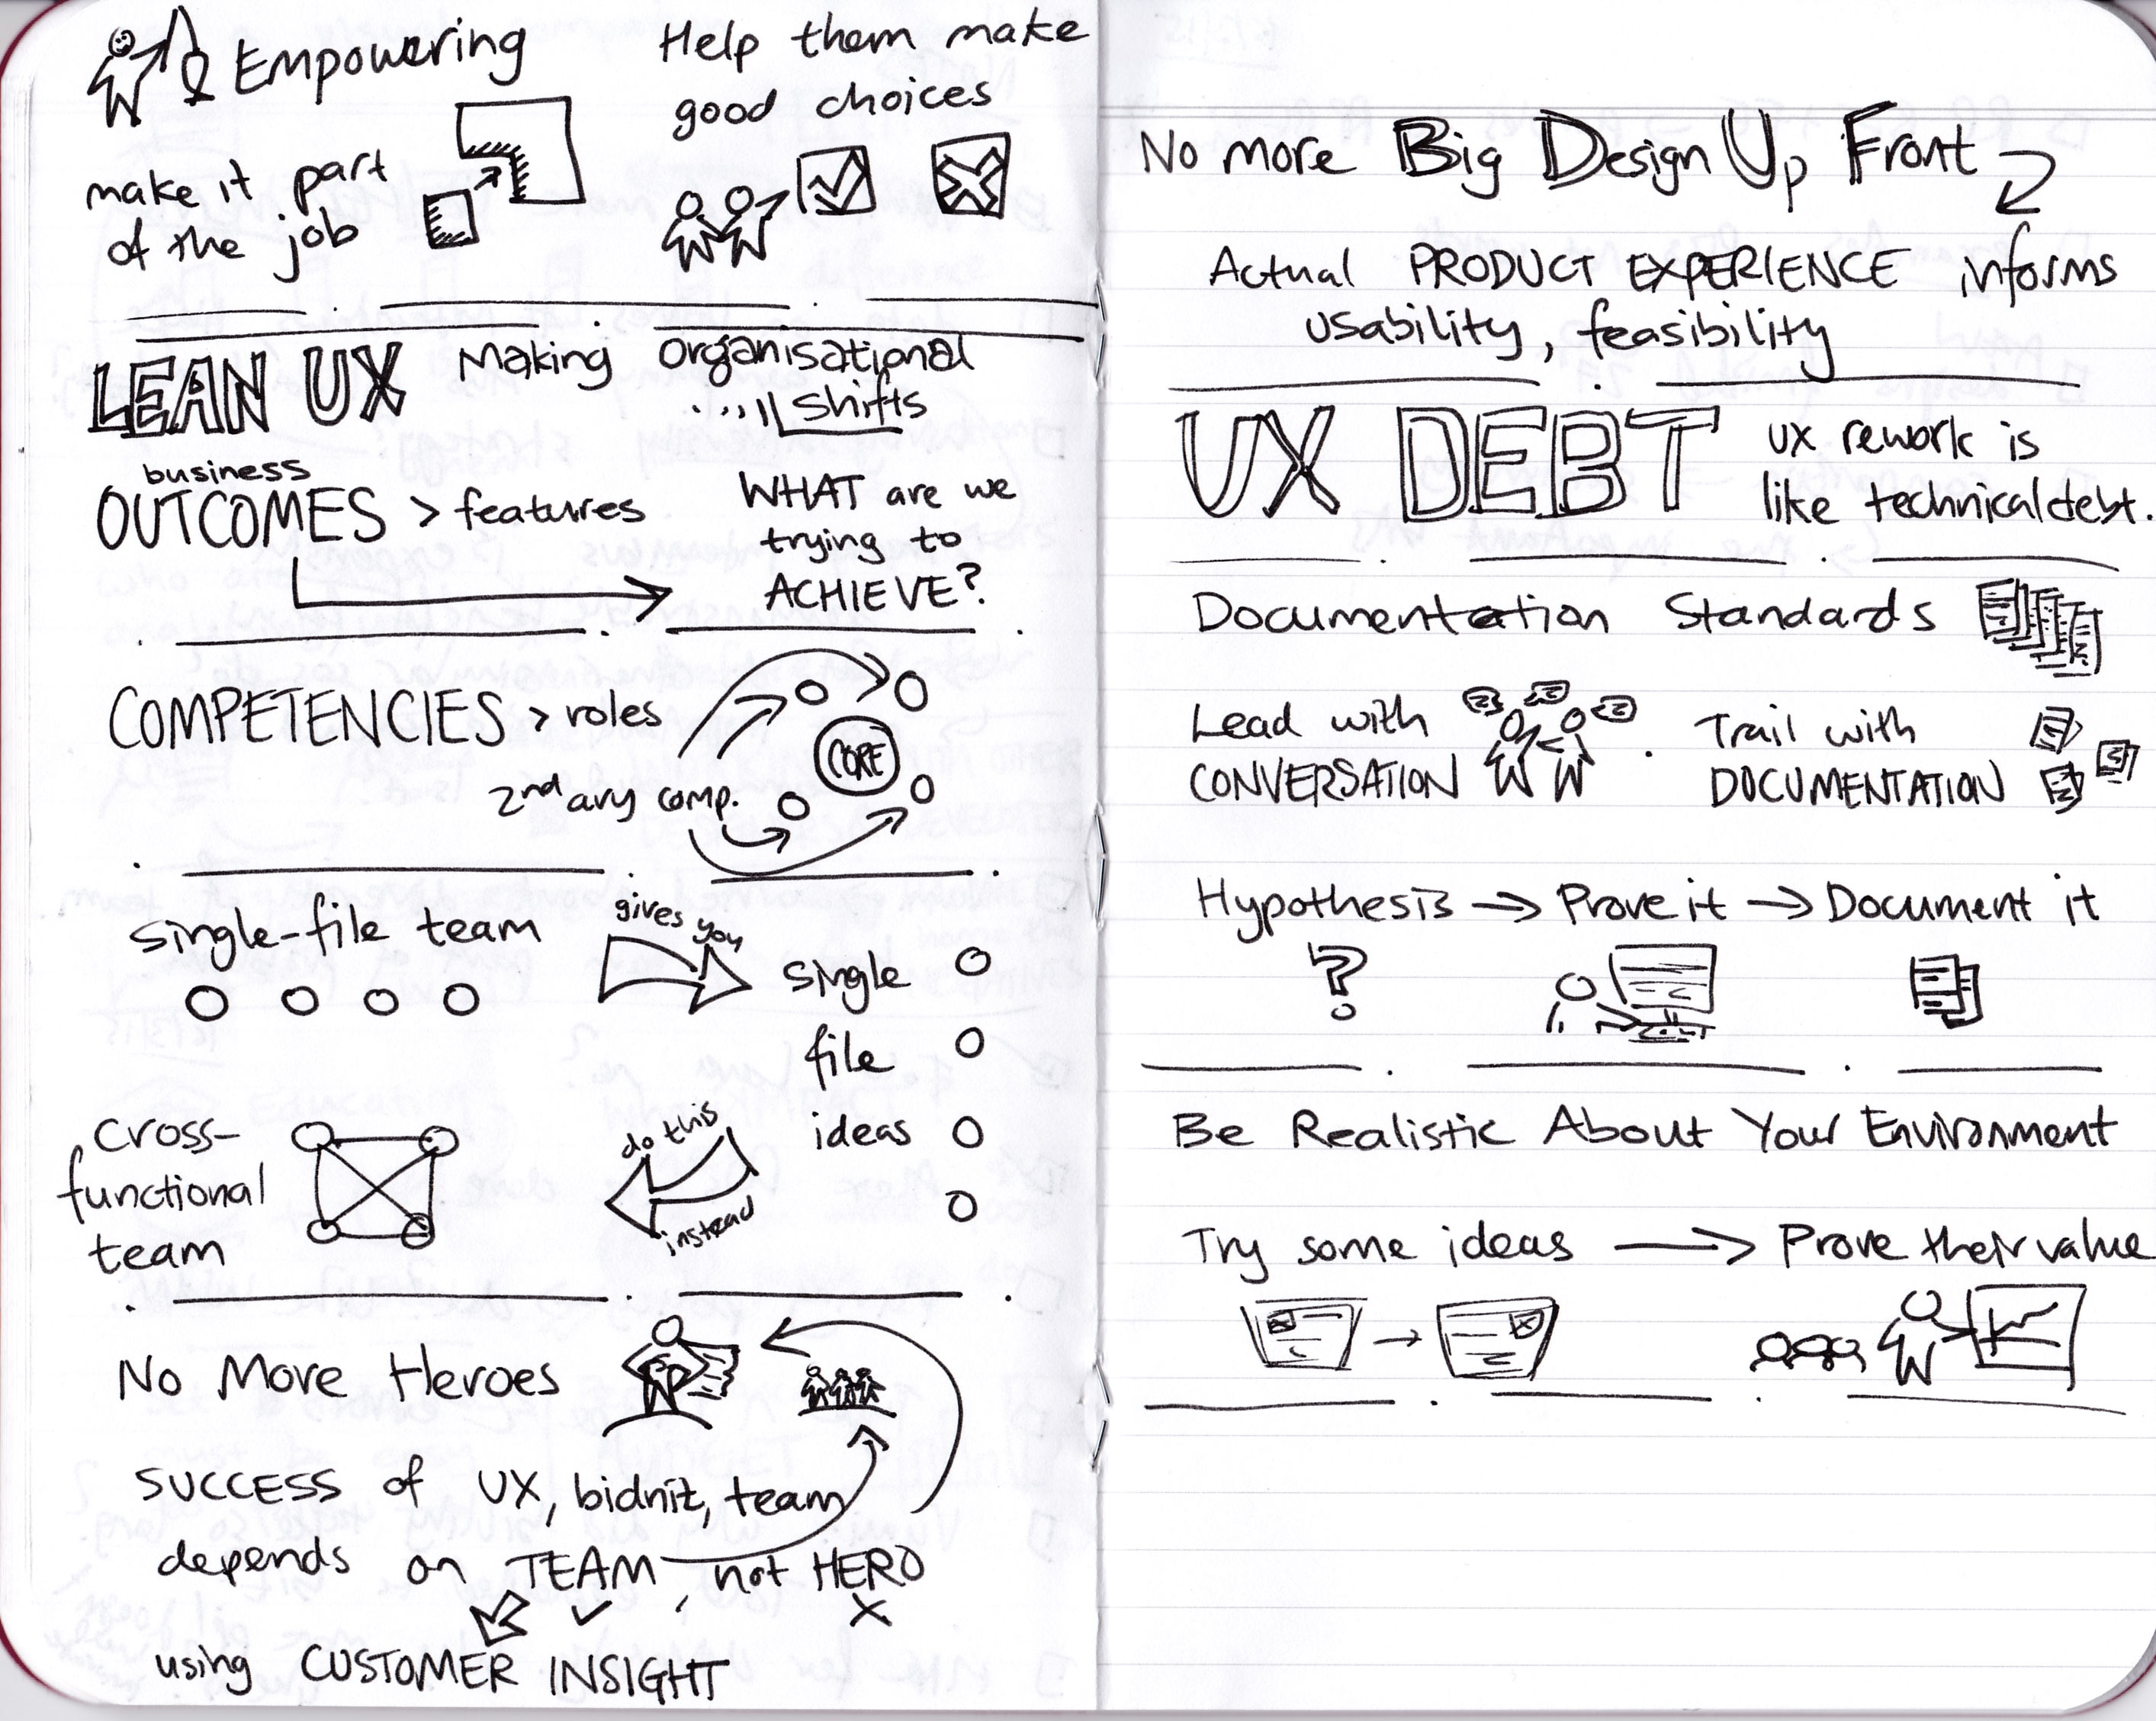 Empowering
make it part
of the job
Help them make
good choices
LEAN UX Making organisational
shifts
business
OUTCOMES > features
WHAT are we
trying to
ACHIEVE?
COMPETENCIES > roles
2ndary comp.
CORE
single-file team
gives you
single
file
ideas
do this
instead
Cross-
functional
team
No More Heroes
SUCCESS of UX, bidnit, team
depends on TEAM, not HERO
using CUSTOMER INSIGHT
No more Big Design Up Front
Actual PRODUCT EXPERIENCE informs
usability, feasibility
UX DEBT
UX rework is
like technical debt.
Documentation Standards
Lead with
CONVERSATION
Trail with
DOCUMENTATION
Hypothesis → Prove it → Document it
?
Be Realistic About Your Environment
Try some ideas → Prove their value